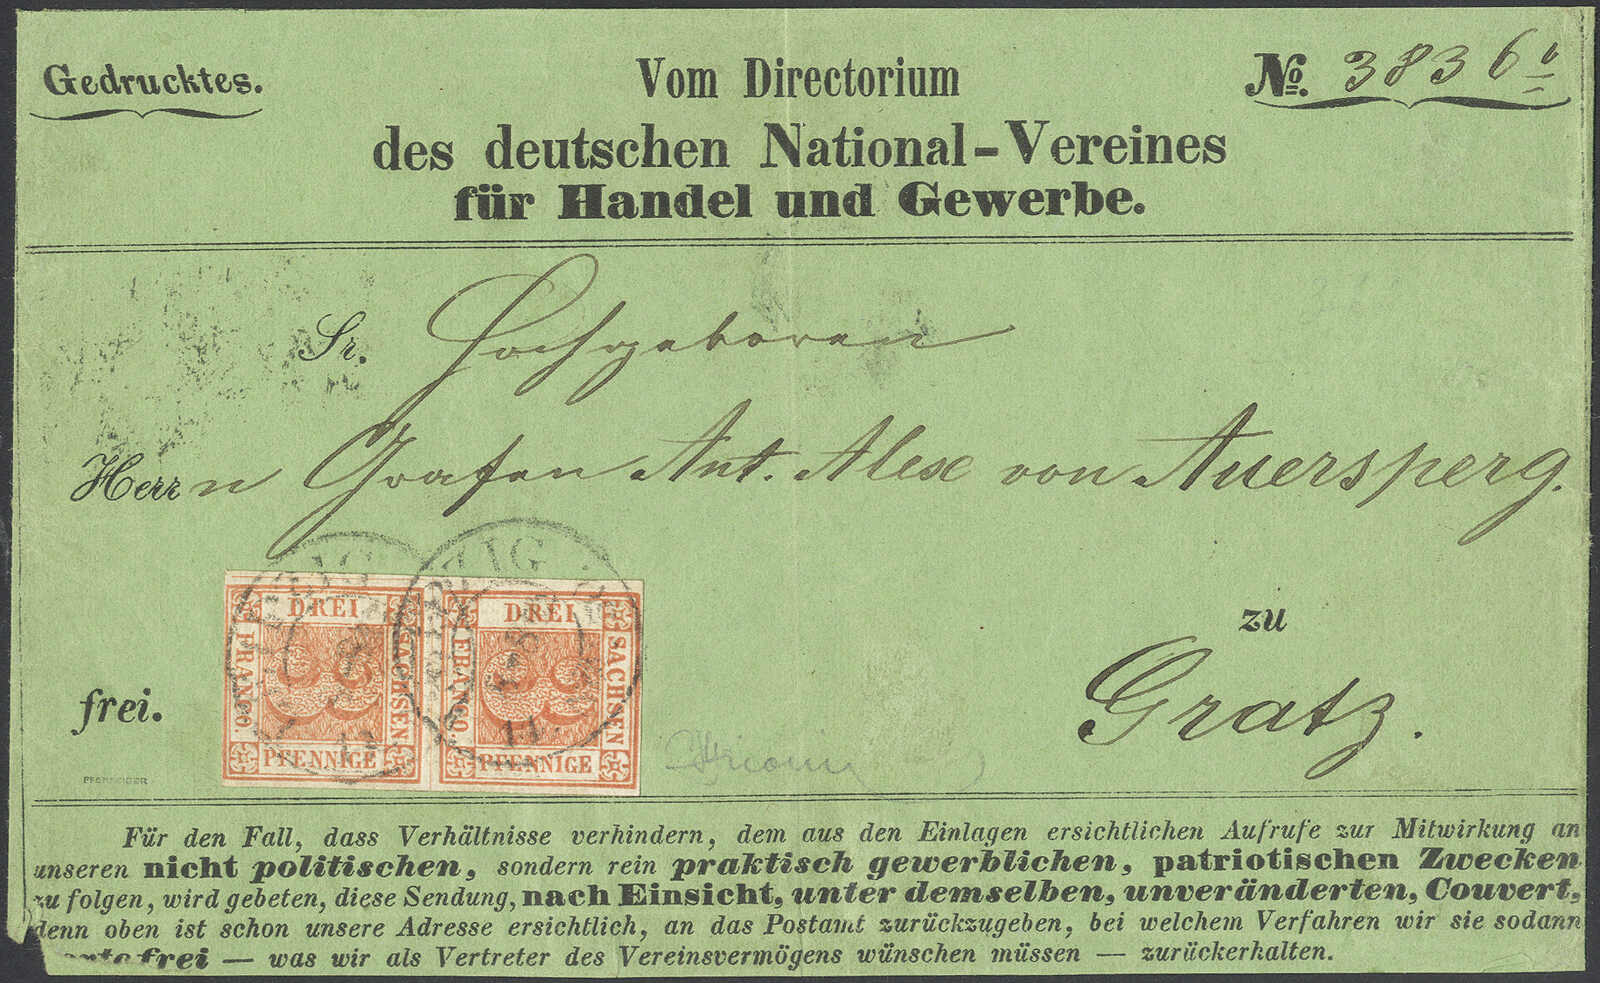 Gedrucktes.
Vom Directorium
No. 3836 b
des deutschen National-Vereines
für Handel und Gewerbe.
Sr. Hochgeboren
Herrn Grafen Ant. Alexe von Auersperg.
zu
Gratz.
frei.
DREI
FRANCO.
SACHSEN
3
PFENNIGE
DREI
FRANCO.
SACHSEN
3
PFENNIGE
LEIPZIG
11
PFENNINGER
Für den Fall, dass Verhältnisse verhindern, dem aus den Einlagen ersichtlichen Aufrufe zur Mitwirkung an
unseren nicht politischen, sondern rein praktisch gewerblichen, patriotischen Zwecken
zu folgen, wird gebeten, diese Sendung, nach Einsicht, unter demselben, unveränderten, Couvert,
denn oben ist schon unsere Adresse ersichtlich, an das Postamt zurückzugeben, bei welchem Verfahren wir sie sodann
portofrei — was wir als Vertreter des Vereinsvermögens wünschen müssen — zurückerhalten.